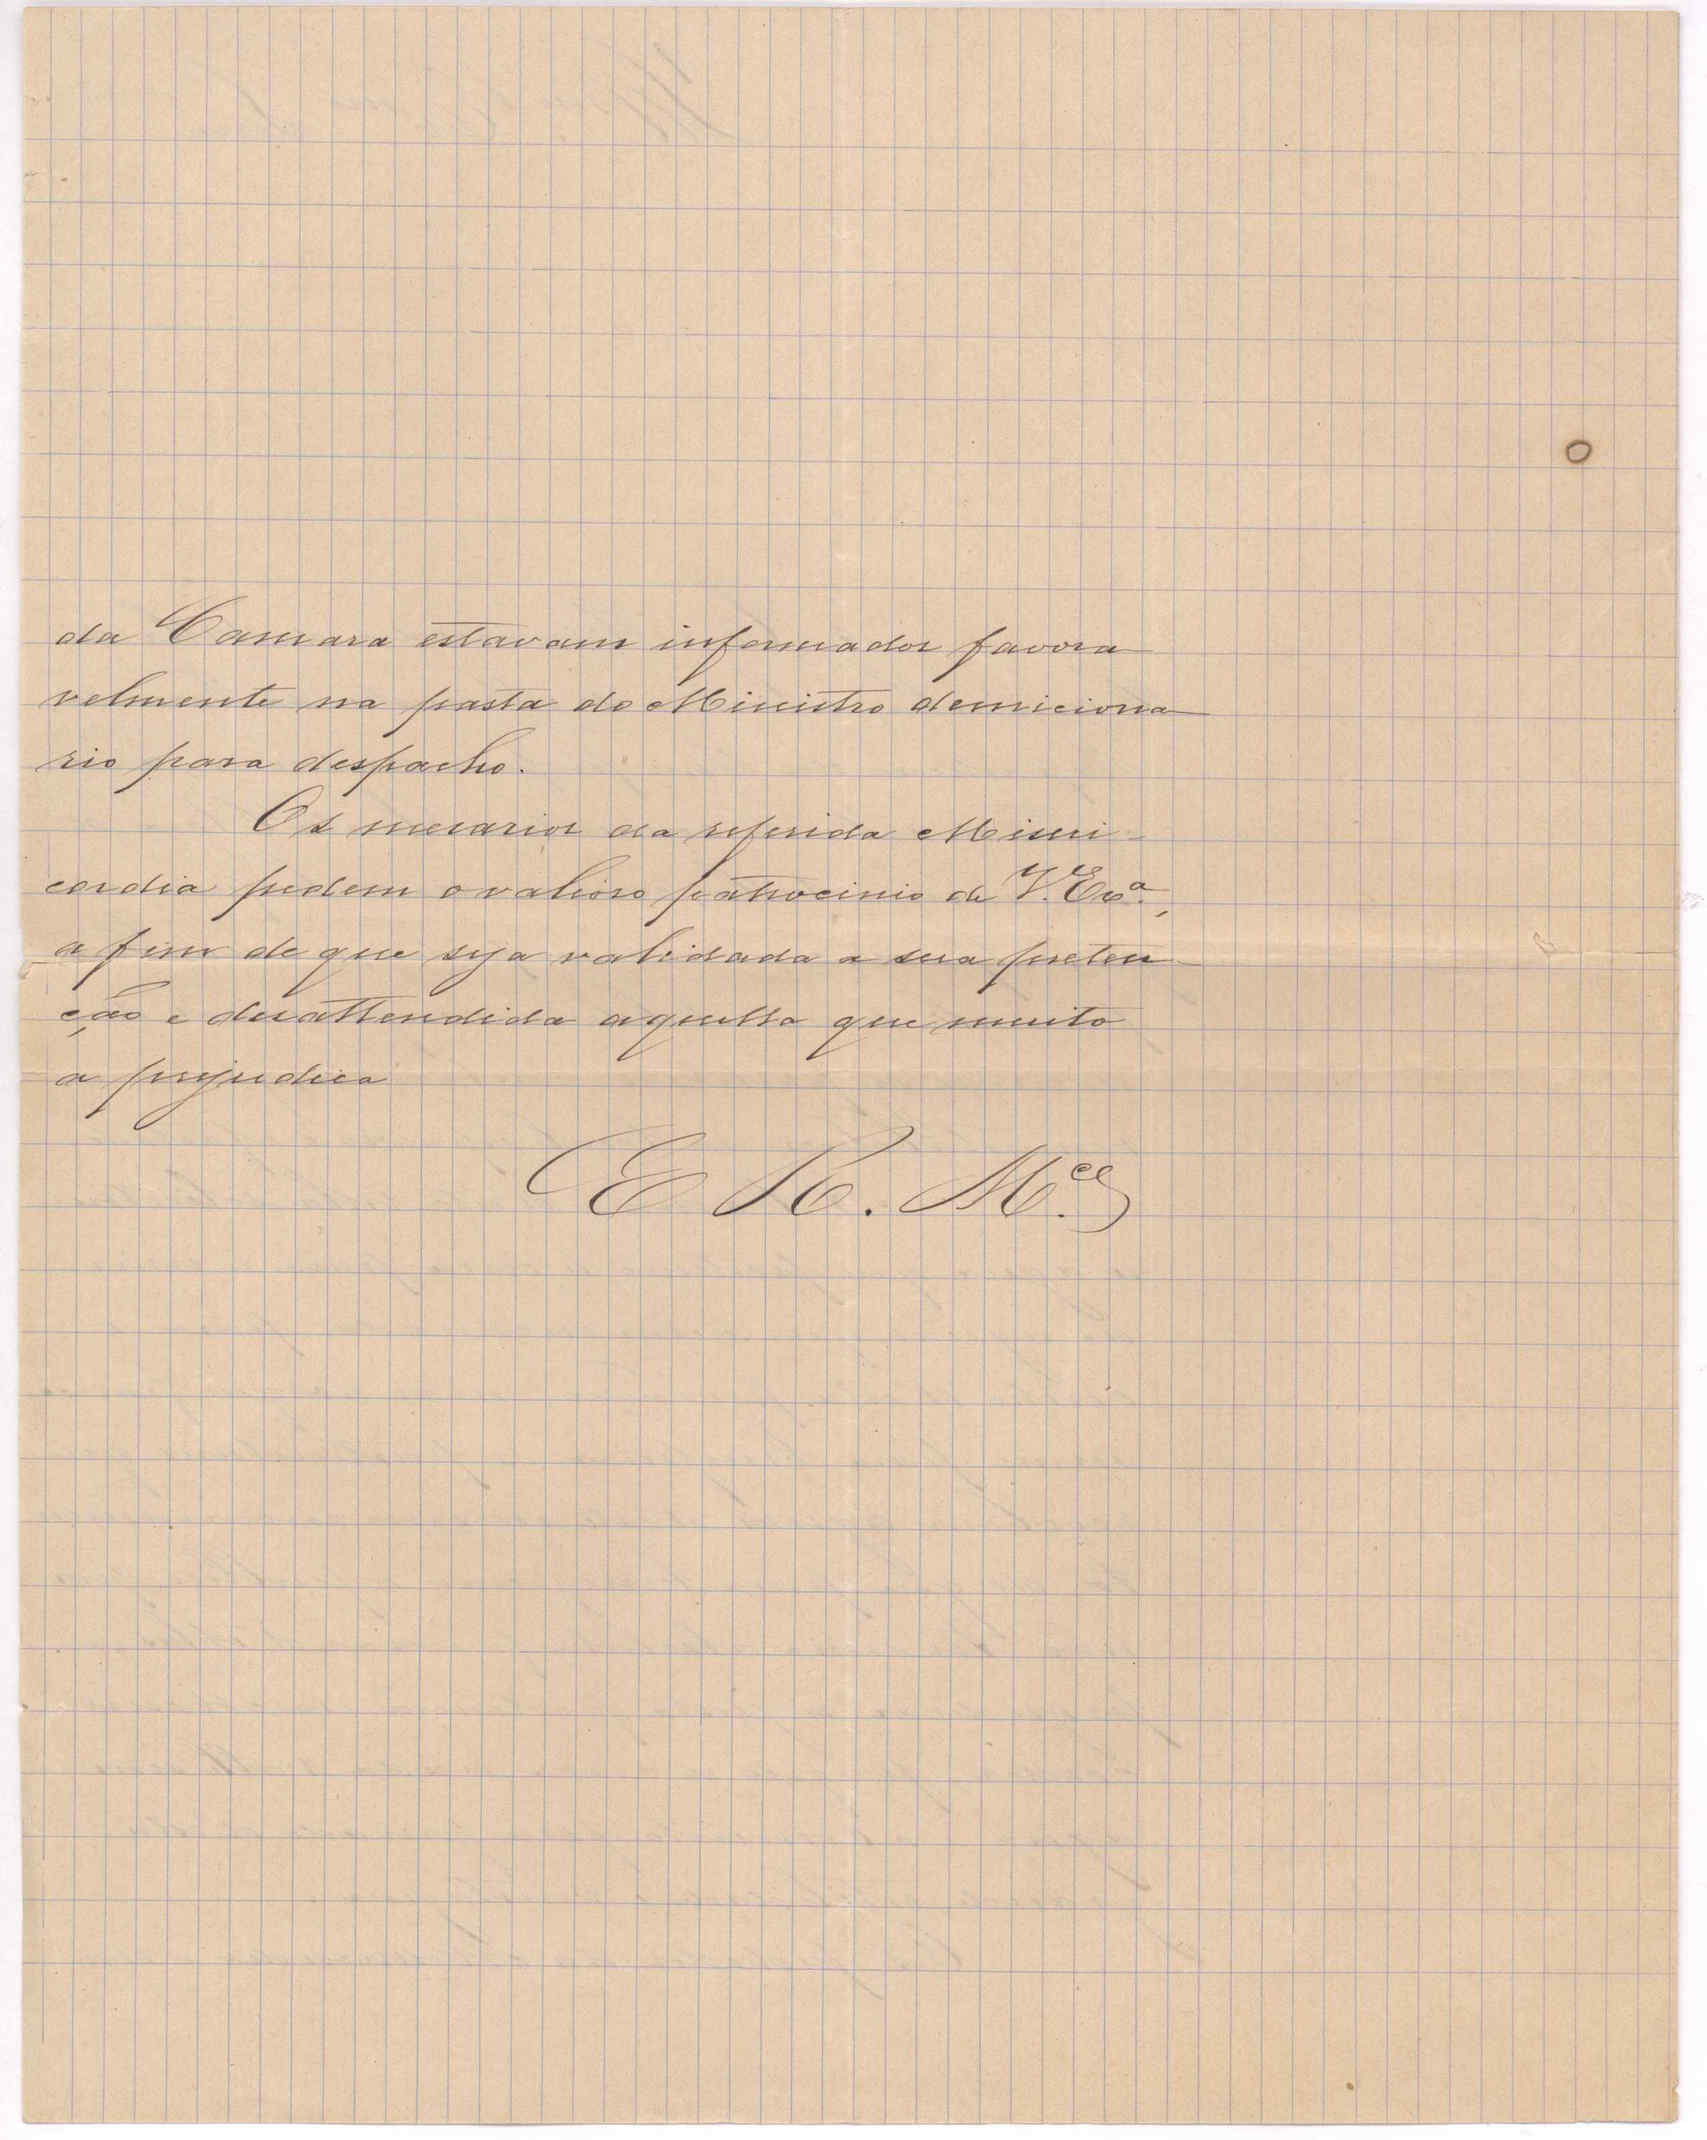 da Camara estavam informados favora
velmente na pasta do Ministro demiciona
rio para despacho.
Os mesarios da referida Miseri-
cordia pedem o valioso patrocinio de V. Exª.,
a fim de que seja validada a sua preten
ção e desattendida aquella que muito
a prejudica
E R. M.ce